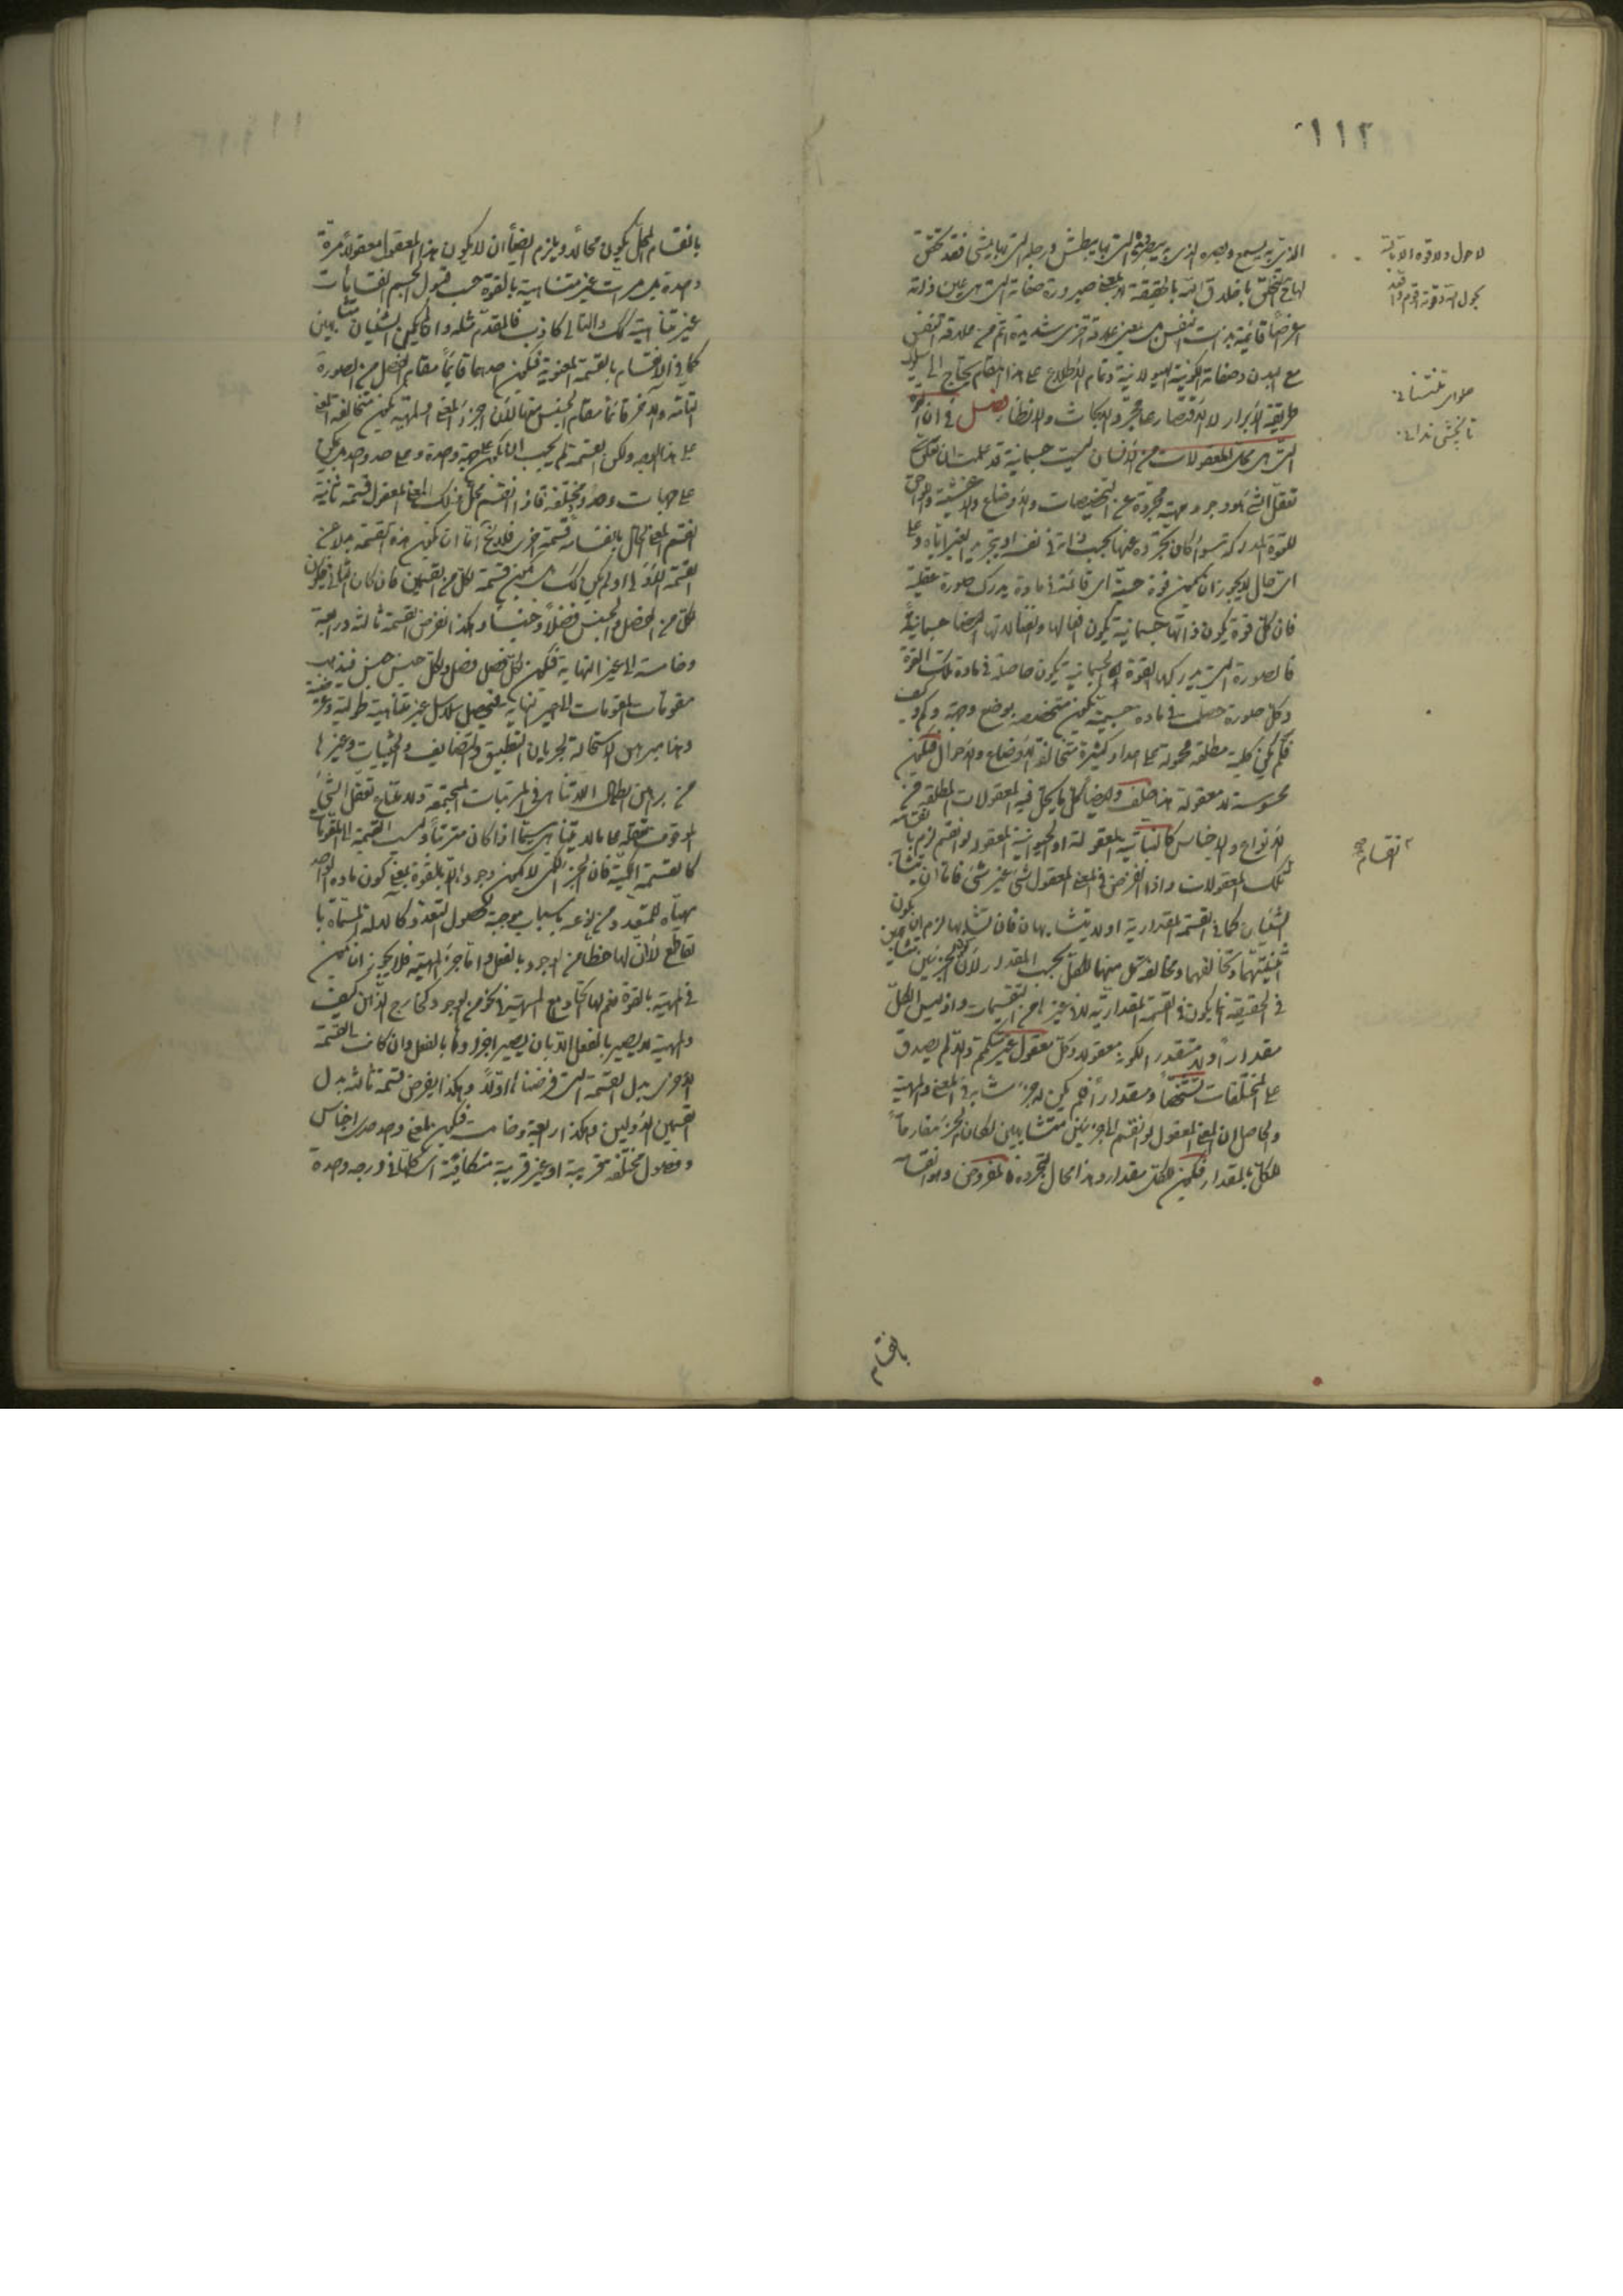 ١١٢
الذي به يسمع وبصره الذي به يبصر ويده التي بها يبطش ورجله التي بها يمشي فقد تحقق
لها التخلق باخلاق الله بالحقيقة لا بمعنى صيرورة صفاته التي هي عين ذاته
اعراضا قائمة بذات النفس بل بمعنى علاقة اخرى شديدة اتم من علاقة النفس
مع البدن وصفاته الكونية الهيولانية وتمام الاطلاع على هذا المقام يحتاج الى سلوك
طريقة الابرار لا الاقتصار على مجرد الابحاث والانظار فصل في ان القوة
التي هي محل المعقولات من الانسان ليست جسمانية قد علمت ان
تعقل الشيء هو وجود مهية مجردة عن التخصيصات والاوضاع والاغشية واللواحق
للقوة المدركة سواء كان تجرده عنها بحسب ذاته في نفسه او بتجريد الغير اياه وعلى
اي حال لا يجوز ان يكون قوة حسية اي قائمة في مادة يدرك صورة عقلية
فان كل قوة يكون ذاتها جسمانية يكون افعالها وانفعالاتها ايضا جسمانية
فالصورة التي يدركها القوة الجسمانية يكون حاصلة في مادة تلك القوة
وكل صورة حصلت في مادة جسمية يكون متخصصة بوضع وجهة وكم وكيف
فلم يكن كلية مطلقة محمولة على اعداد كثيرة متخالفة الاوضاع والاحوال فيكون
محسوسة لا معقولة هذا خلف وايضا كل ما يحل فيه المعقولات المطلقة من
الانواع والاجناس كالنباتية المعقولة او الحيوانية المعقولة لو انقسم لزم بانقسامه
تلك المعقولات واذا انفرض في المعنى المعقول شيء غير شيء فاما ان يتشابه
الشيئان كما في القسمة المقدارية او لا يتشابهان فان تشابها لزم ان يكون
اثنينيتهما وتخالفهما ومخالفة كل منهما للكل بحسب المقدار لان الجزئين
في الحقيقة انما يكون في القسمة المقدارية لا في غيرها من التقسيمات واذ ليس الكل
مقدارا ولا متقدرا لكونه معقولا وكل معقول غير متكمم والا لم يصدق
على المختلفات تشخصا ومقدارا فلم يكن له جزء مشابه في المعنى والمهية
والحاصل ان المعنى المعقول لو انقسم الى جزئين متشابهين لكان الجزء مفارقا
للكل بالمقدار فيكون للكل مقدار وهذا محال لتجرده المفروض وهو انقسامه
لا حول ولا قوة الا بالله
بحول الله وقوته اقوم واقعد
انقسام
بانقسام
بانقسام المحل يكون محالا ويلزم ايضا ان لا يكون هذا المعقول معقولا مرة
واحدة بل مرات غير متناهية بالقوة حسب قبول الجسم انقسامات
غير متناهية كك والتالي كاذب فالمقدم مثله وان لم يكن الشيئان متشابهين
كما في الانقسام بالقسمة المعنوية فيكون احدهما قائما مقام الفصل من الصورة
التامة والآخر قائما مقام الجنس منها لان اجزاء المعنى والمهية يكون متخالفة المعنى
على هذا الوجه ولكن القسمة لم يجب ان يكون على جهة واحدة وعلى حد واحد بل يمكن
على جهات وحدود مختلفة فاذا انقسم محل ذلك المعنى المعقول قسمة ثانية
انقسم المعنى الحال بانقسامه قسمة اخرى فلا يخ اما ان يكون هذه القسمة هي عين
القسمة الاولى او لم يكن كك بل يكون قسمة لكل من القسمين فان كان الثاني فيكون
لكل من الفصل والجنس فصلا وجنسا وهكذا نفرض القسمة ثالثة ورابعة
وخامسة الى غير النهاية فيكون لكل فصل فصل ولكل جنس جنس فيذهب
مقومات المقومات الى غير النهاية فيحصل سلاسل غير متناهية طولية وعرضية
وهذا مبرهن الاستحالة لجريان التطبيق والتضايف والحيثيات وغيرها
من براهين ابطال اللاتناهي في المرتبات المجتمعة ولامتناع تعقل الشيء
الموقوف تعقله على ما لا يتناهى سيما اذا كان مترتبا وليست القسمة الى المقومات
كالقسمة الكمية فان الجزء الكمي لا يكون وجوده الا بالقوة بمعنى كون مادة الواحد
مهيأة للمتعدد من نوعه باسباب موجبة لحصول التعدد كالآلة المسماة با
لقاطع لان لها حظا من الوجود بالفعل واما جزء المهية فلا يجوز ان يكون
في المهية بالقوة نعم لها اتحاد مع المهية في نحو من الوجود كخارج الذهن كيف
والمهية لا يصير بالفعل الا بان يصير اجزاؤها بالفعل وان كانت القسمة
الاخرى بدل القسمة التي فرضناها اولا وهكذا يفرض قسمة ثالثة بدل
القسمين الاوليين وهكذا رابعة وخامسة فيكون لمعنى واحد حدى اجناس
وفصول مختلفة قريبة او غير قريبة متكافئة اي كلها في درجة واحدة